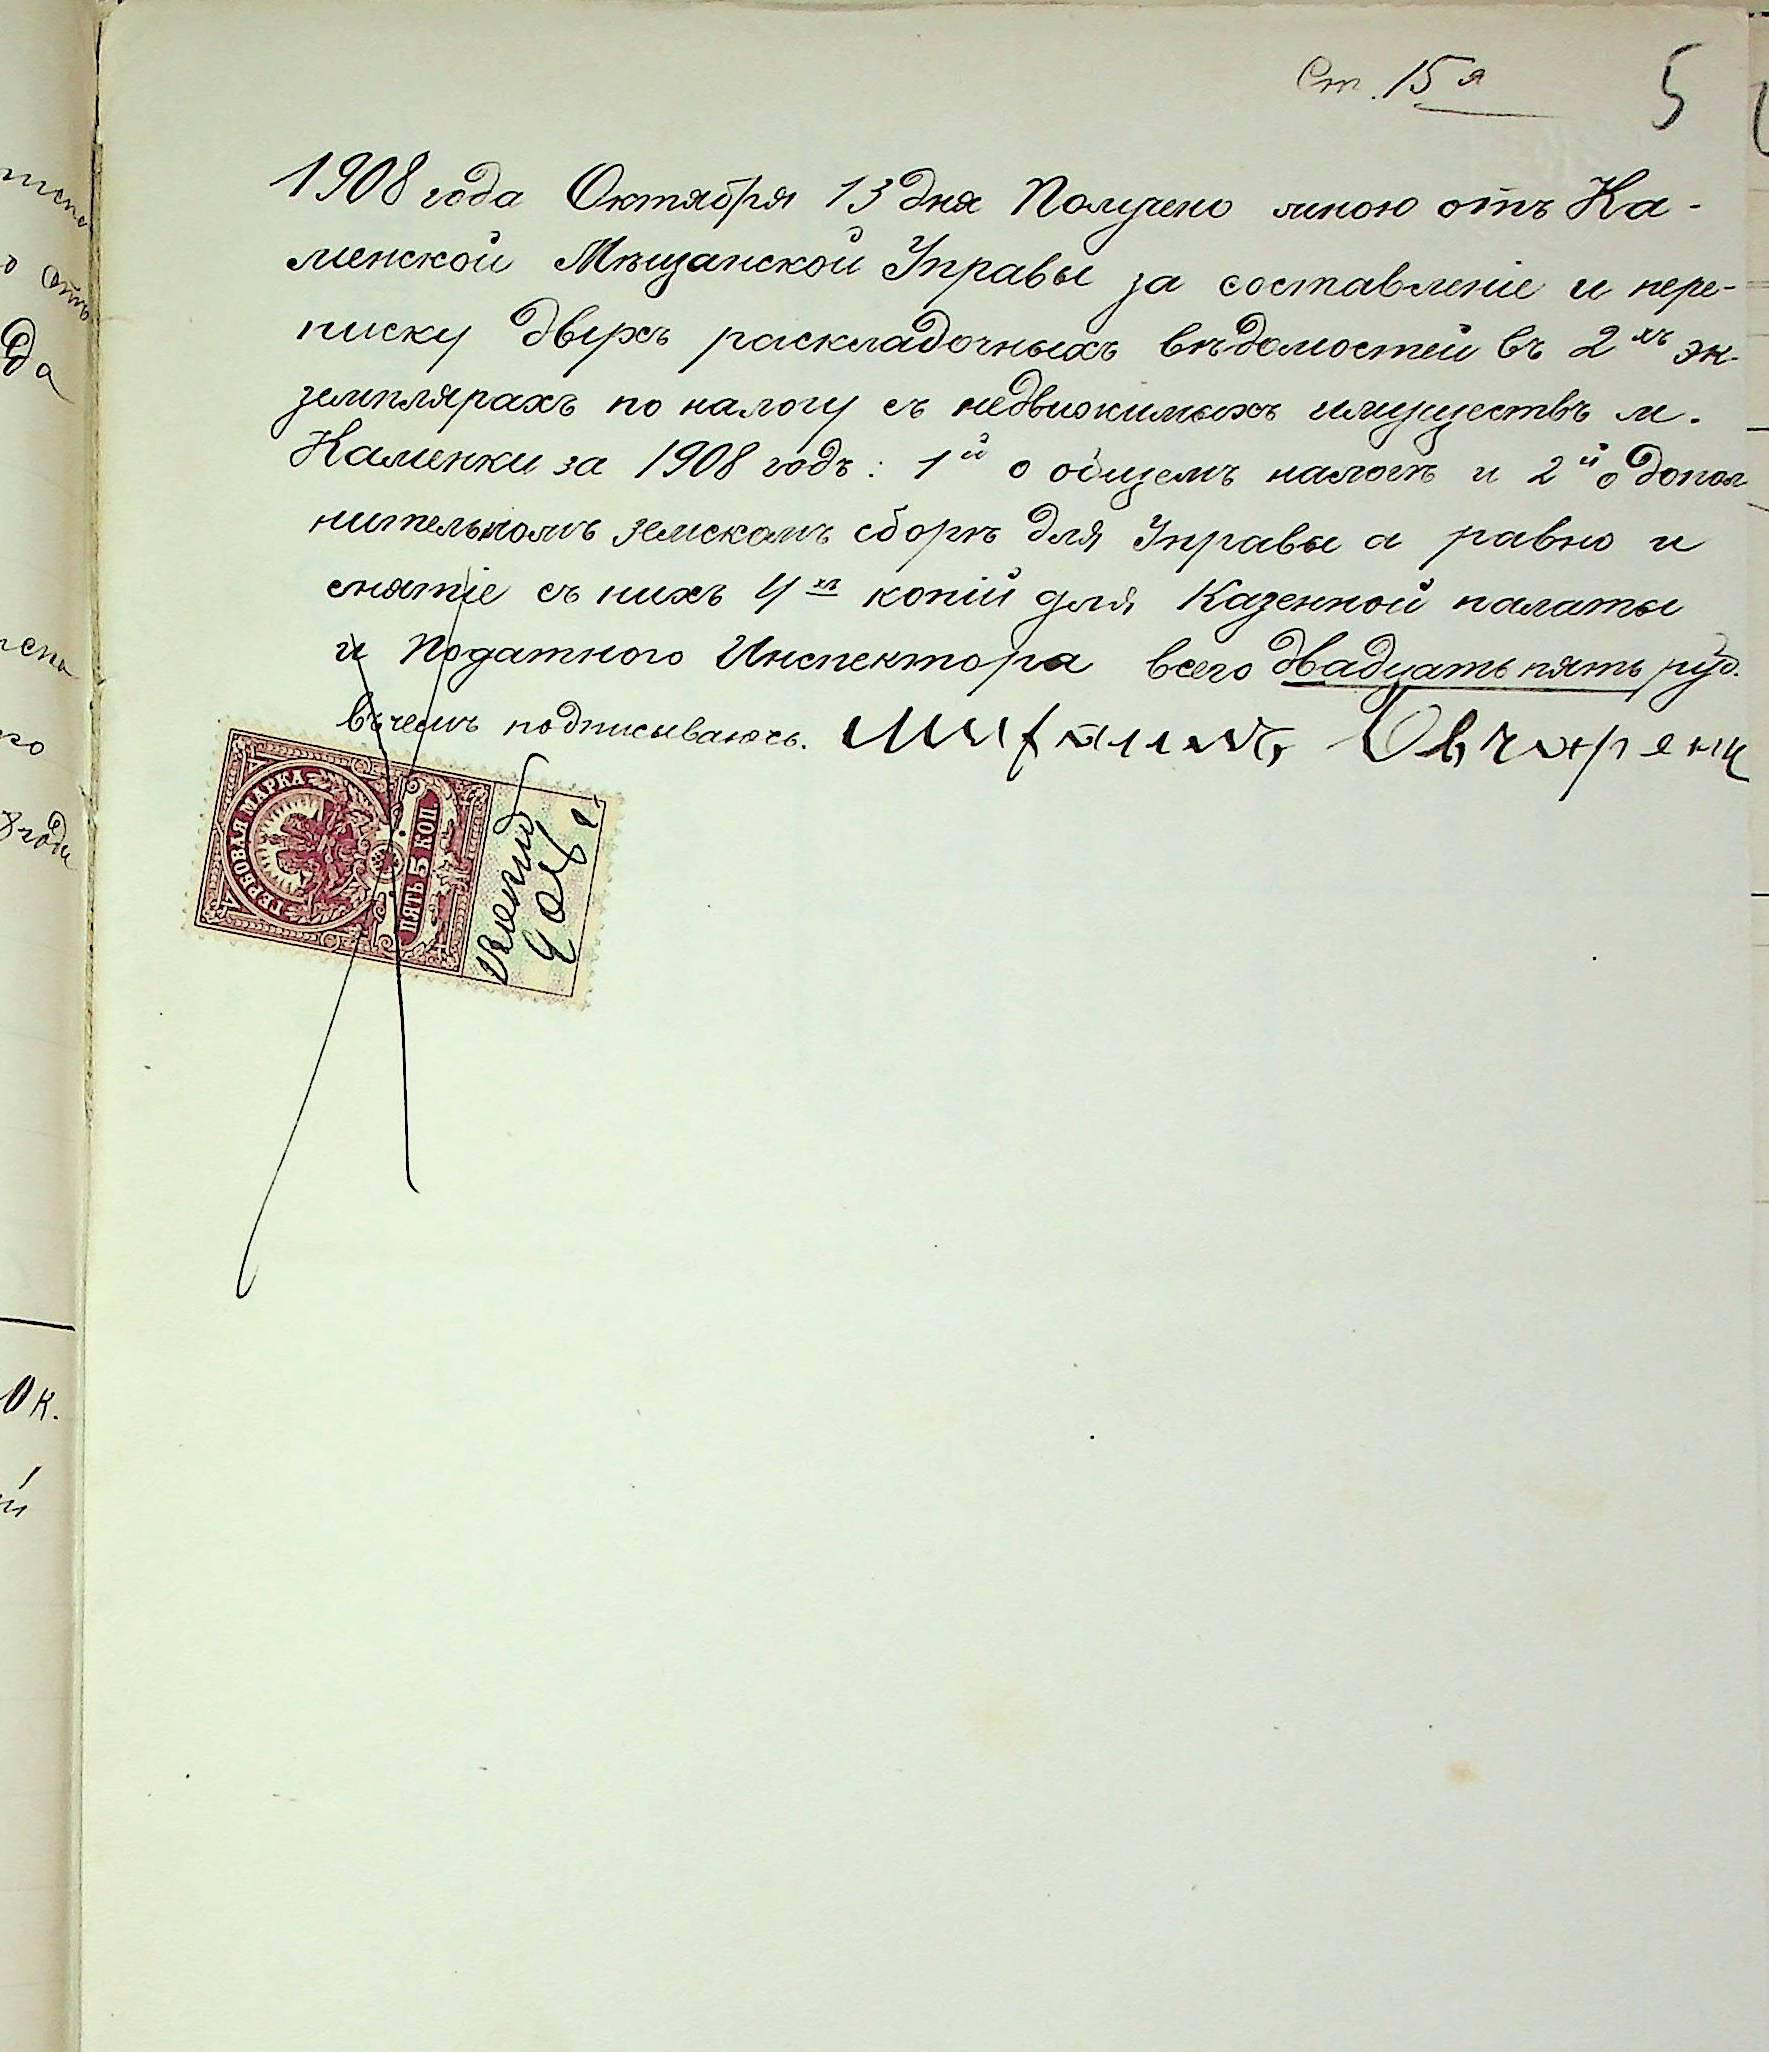 Ст. 15я
5
1908 года Октября 13 дня Получено мною отъ Ка-
менской Мѣщанской Управы за составленіе и пере-
писку двухъ раскладочныхъ вѣдомостей въ 2хъ эк-
земплярахъ по налогу съ недвижимыхъ имуществъ м.
Каменки за 1908 годъ: 1й о общемъ налогѣ и 2й о допол
нительномъ земскомъ сборѣ для Управы а равно и
снятіе съ нихъ 4хъ копій для Казенной палаты
и Податного Инспектора всего двадцать пять руб.
въ чемъ подписываюсь. Михаилъ Овчаренк
ГЕРБОВАЯ МАРКА
ПЯТЬ 5 КОП.
да
года
0 к.